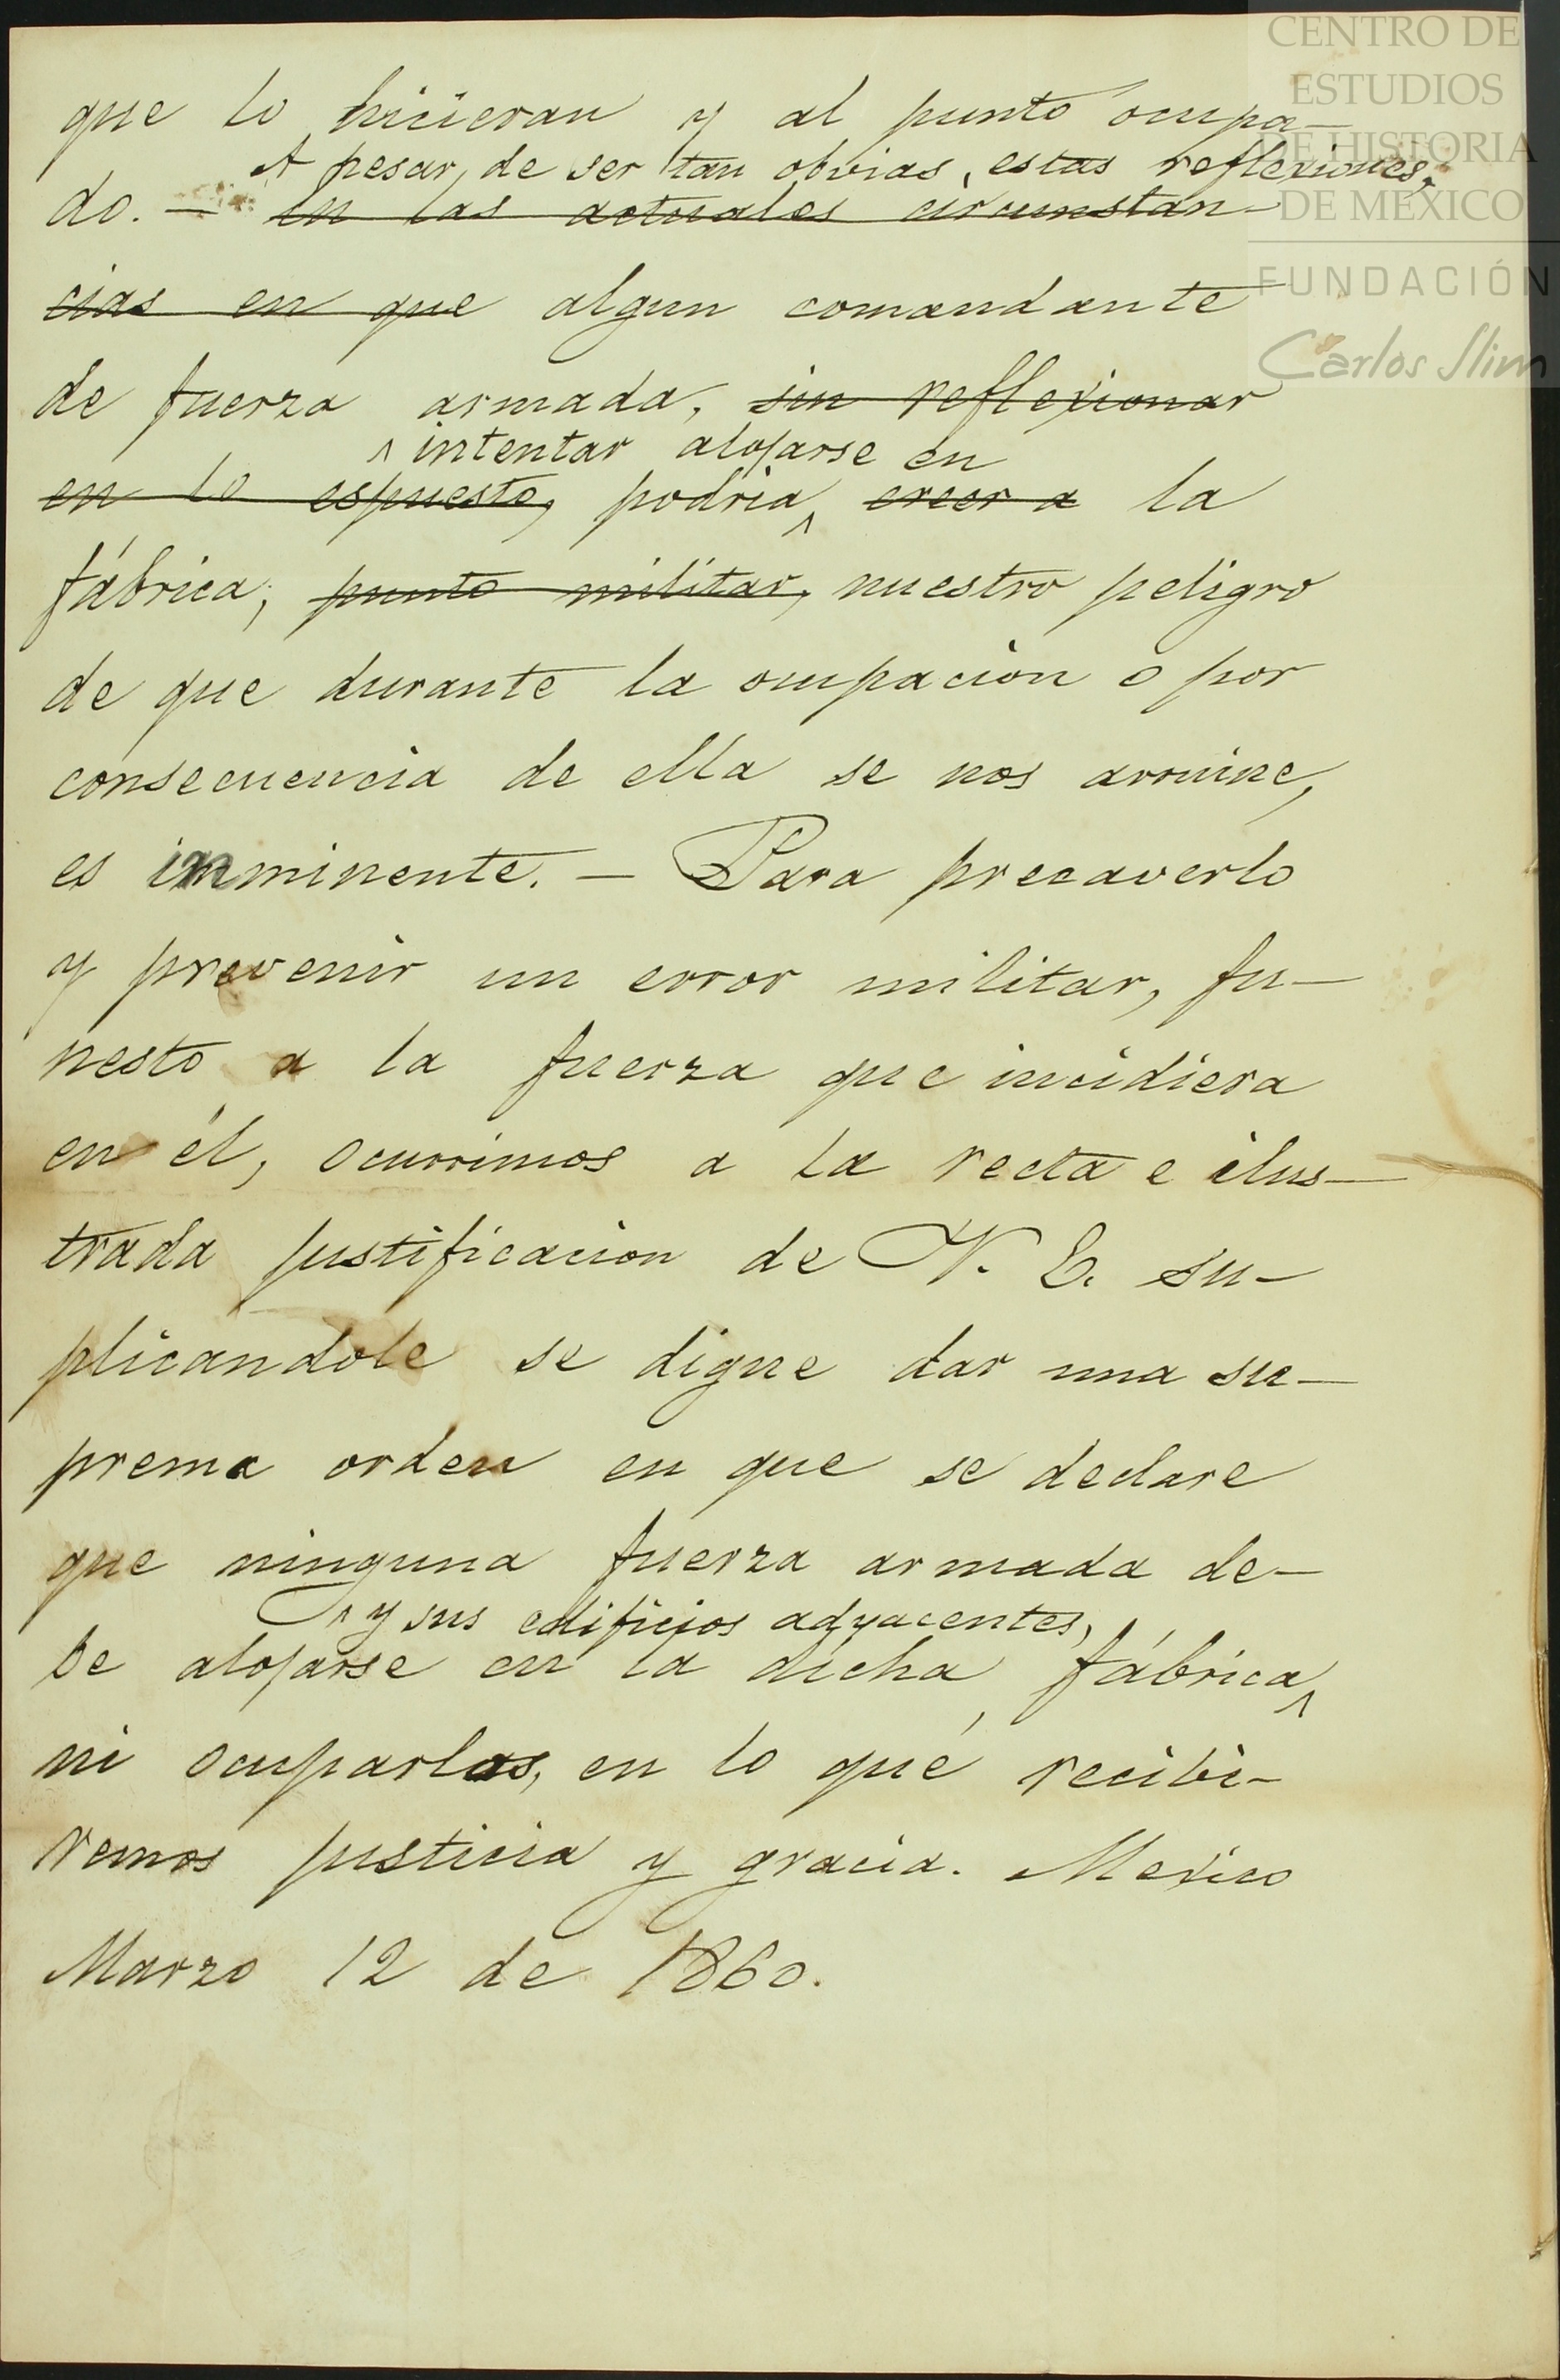 CENTRO DE
ESTUDIOS
DE HISTORIA
DE MÉXICO
FUNDACIÓN
Carlos Slim
que lo hicieran y al punto ocupa-
A pesar, de ser tan obvias, estas reflexiones,
do. — en las actuales circunstan-
cias en que algun comandante
de fuerza armada, sin reflexionar
^ intentar alojarse en
en lo espuesto, podria^ creer a la
fábrica, punto militar, nuestro peligro
de que durante la ocupacion o por
consecuencia de ella se nos arruine,
es inminente. — Para precaverlo
y prevenir un error militar, fu-
nesto a la fuerza que incidiera
en él, ocurrimos a la recta e ilus-
trada justificacion de V. E. su-
plicandole se digne dar una su-
prema orden en que se declare
que ninguna fuerza armada de-
^ y sus edificios adyacentes,
be alojarse en la dicha fábrica^
ni ocuparlos, en lo qué recibi-
remos justicia y gracia. Mexico
Marzo 12 de 1860.